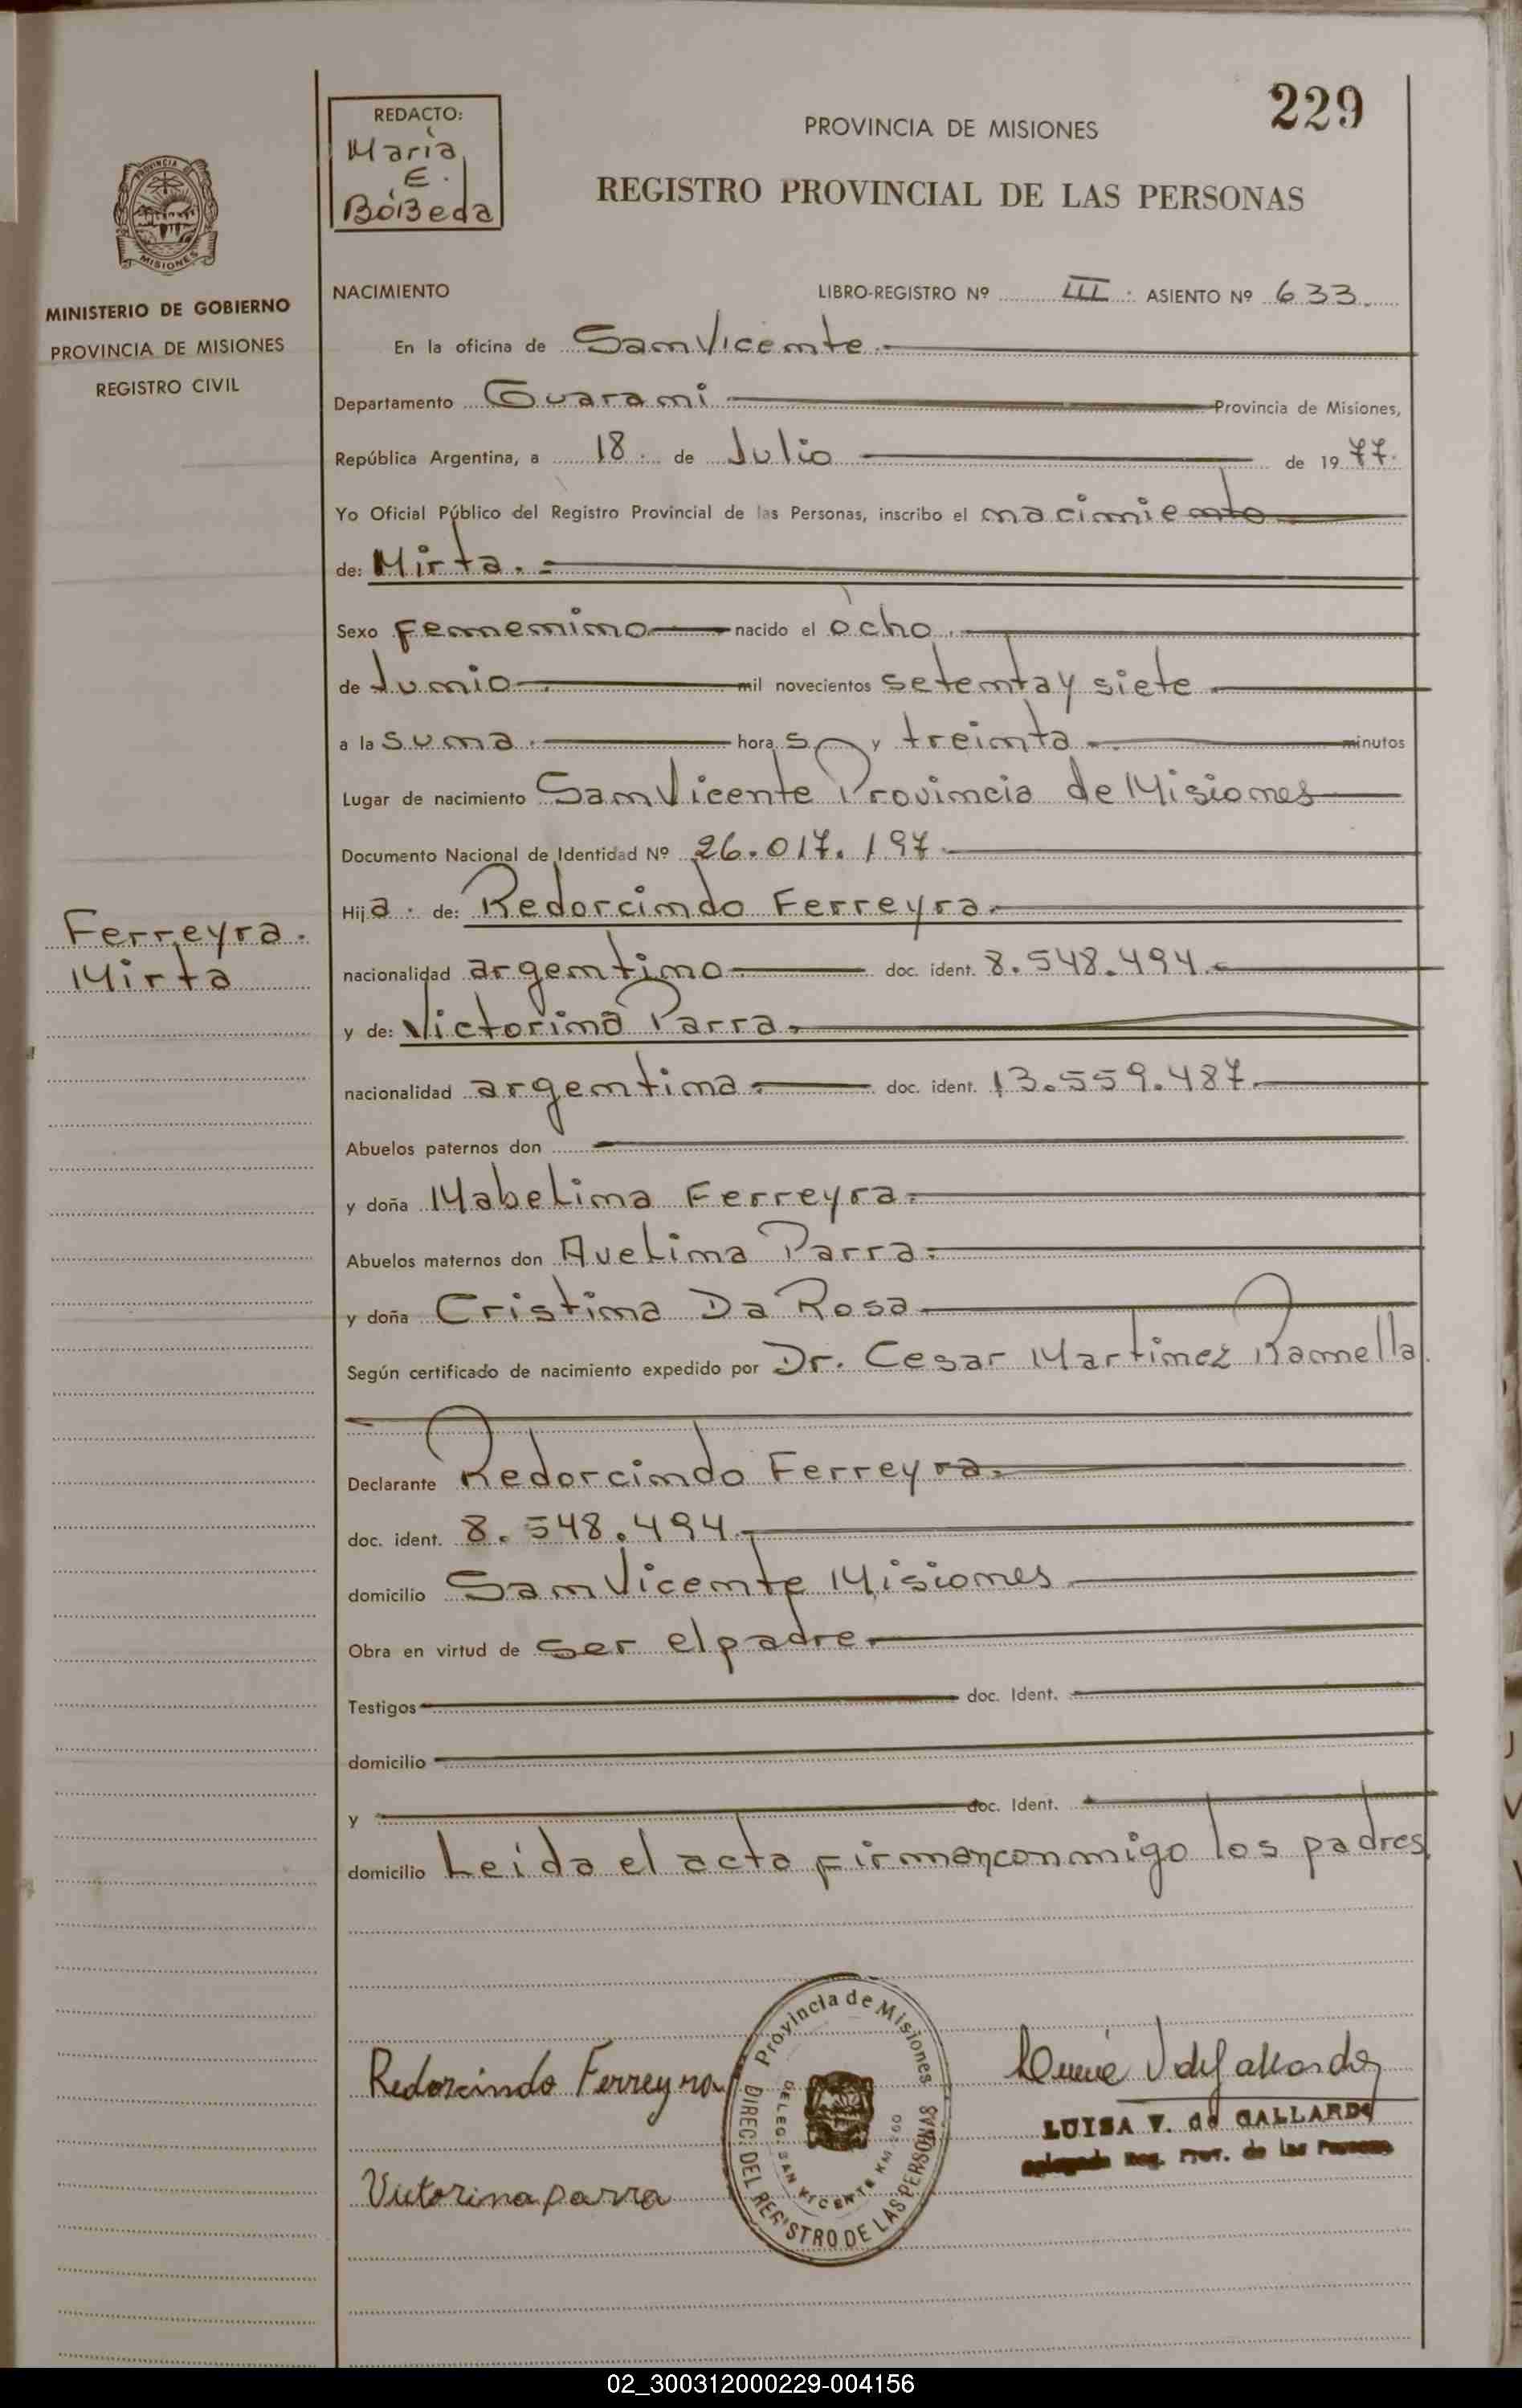 229
REDACTO:
Maria
E.
BóBeda
PROVINCIA DE MISIONES
REGISTRO PROVINCIAL DE LAS PERSONAS
PROVINCIA
MISIONES
MINISTERIO DE GOBIERNO
PROVINCIA DE MISIONES
REGISTRO CIVIL
NACIMIENTO LIBRO-REGISTRO Nº III. ASIENTO Nº 633.
En la oficina de San Vicente.
Departamento Guarani Provincia de Misiones,
República Argentina, a 18. de Julio de 1977.
Yo Oficial Público del Registro Provincial de las Personas, inscribo el nacimiento
de: Mirta.
Sexo femenino nacido el ocho.
de Junio. mil novecientos setenta y siete
a las una. horas y treinta minutos
Lugar de nacimiento San Vicente Provincia de Misiones
Documento Nacional de Identidad Nº 26.017.197
Hija. de: Redorcindo Ferreyra.
Ferreyra.
Mirta
nacionalidad argentino doc. ident. 8.548.494.
y de: Victorina Parra.
nacionalidad argentina doc. ident. 13.559.487.
Abuelos paternos don
y doña Mabelina Ferreyra.
Abuelos maternos don Avelina Parra.
y doña Cristina Da Rosa
Según certificado de nacimiento expedido por Dr. Cesar Martinez Ramella.
Declarante Redorcindo Ferreyra.
doc. ident. 8.548.494.
domicilio San Vicente Misiones
Obra en virtud de ser el padre.
Testigos doc. Ident.
domicilio
y doc. Ident.
domicilio Leida el acta firman conmigo los padres
Redorcindo Ferreyra
Victorina parra
Provincia de Misiones
DIREC. DEL REGISTRO DE LAS PERSONAS
DELEG. SAN VICENTE KM
LUISA V. de GALLARDO
Reg. Prov. de las Personas
02_300312000229-004156